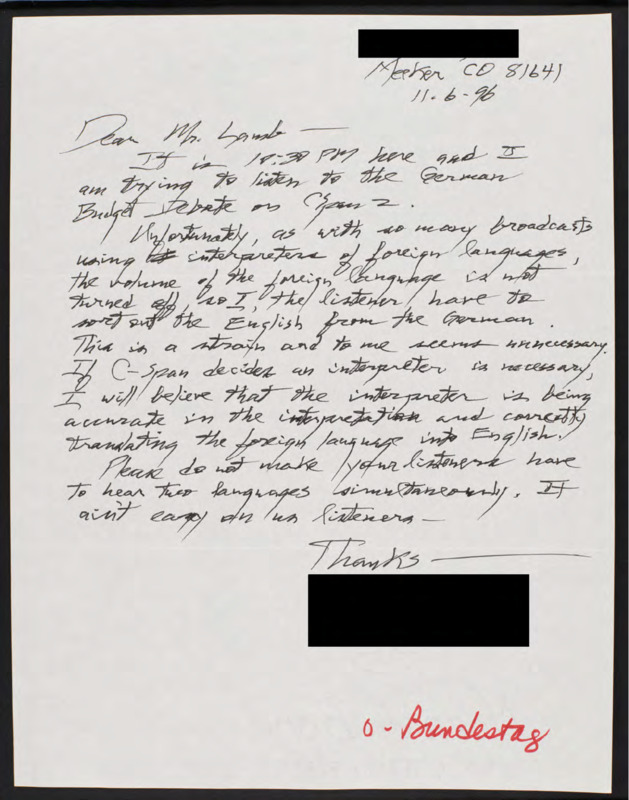 Meeker CO 81641
11-6-96
Dear Mr. Lamb —
It is 10:30 PM here and I
am trying to listen to the German
Budget Debate on CSpan 2.
Unfortunately, as with so many broadcasts
using interpreters of foreign languages,
the volume of the foreign language is not
turned off, so I, the listener, have to
sort out the English from the German.
This is a strain and to me seems unnecessary.
If C-Span decides an interpreter is necessary,
I will believe that the interpreter is being
accurate in the interpretation and correctly
translating the foreign language into English.
Please do not make your listeners have
to hear two languages simultaneously. It
ain't easy on us listeners —
Thanks —
o - Bundestag